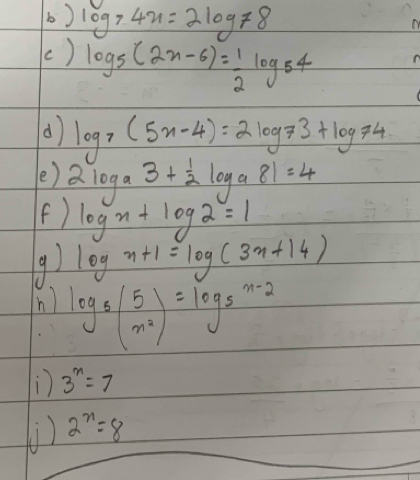 b) log₇ 4x = 2log₇8
c) log₅(2x-6) = 1/2 log₅4
d) log₇ (5x-4) = 2log₇3 + log₇4
e) 2loga 3 + 1/2 loga 81 = 4
f) log x + log 2 = 1
g) log x+1 = log(3x+14)
h) log₅ (5/x²) = log₅ x-2
i) 3ˣ = 7
j) 2ˣ = 8